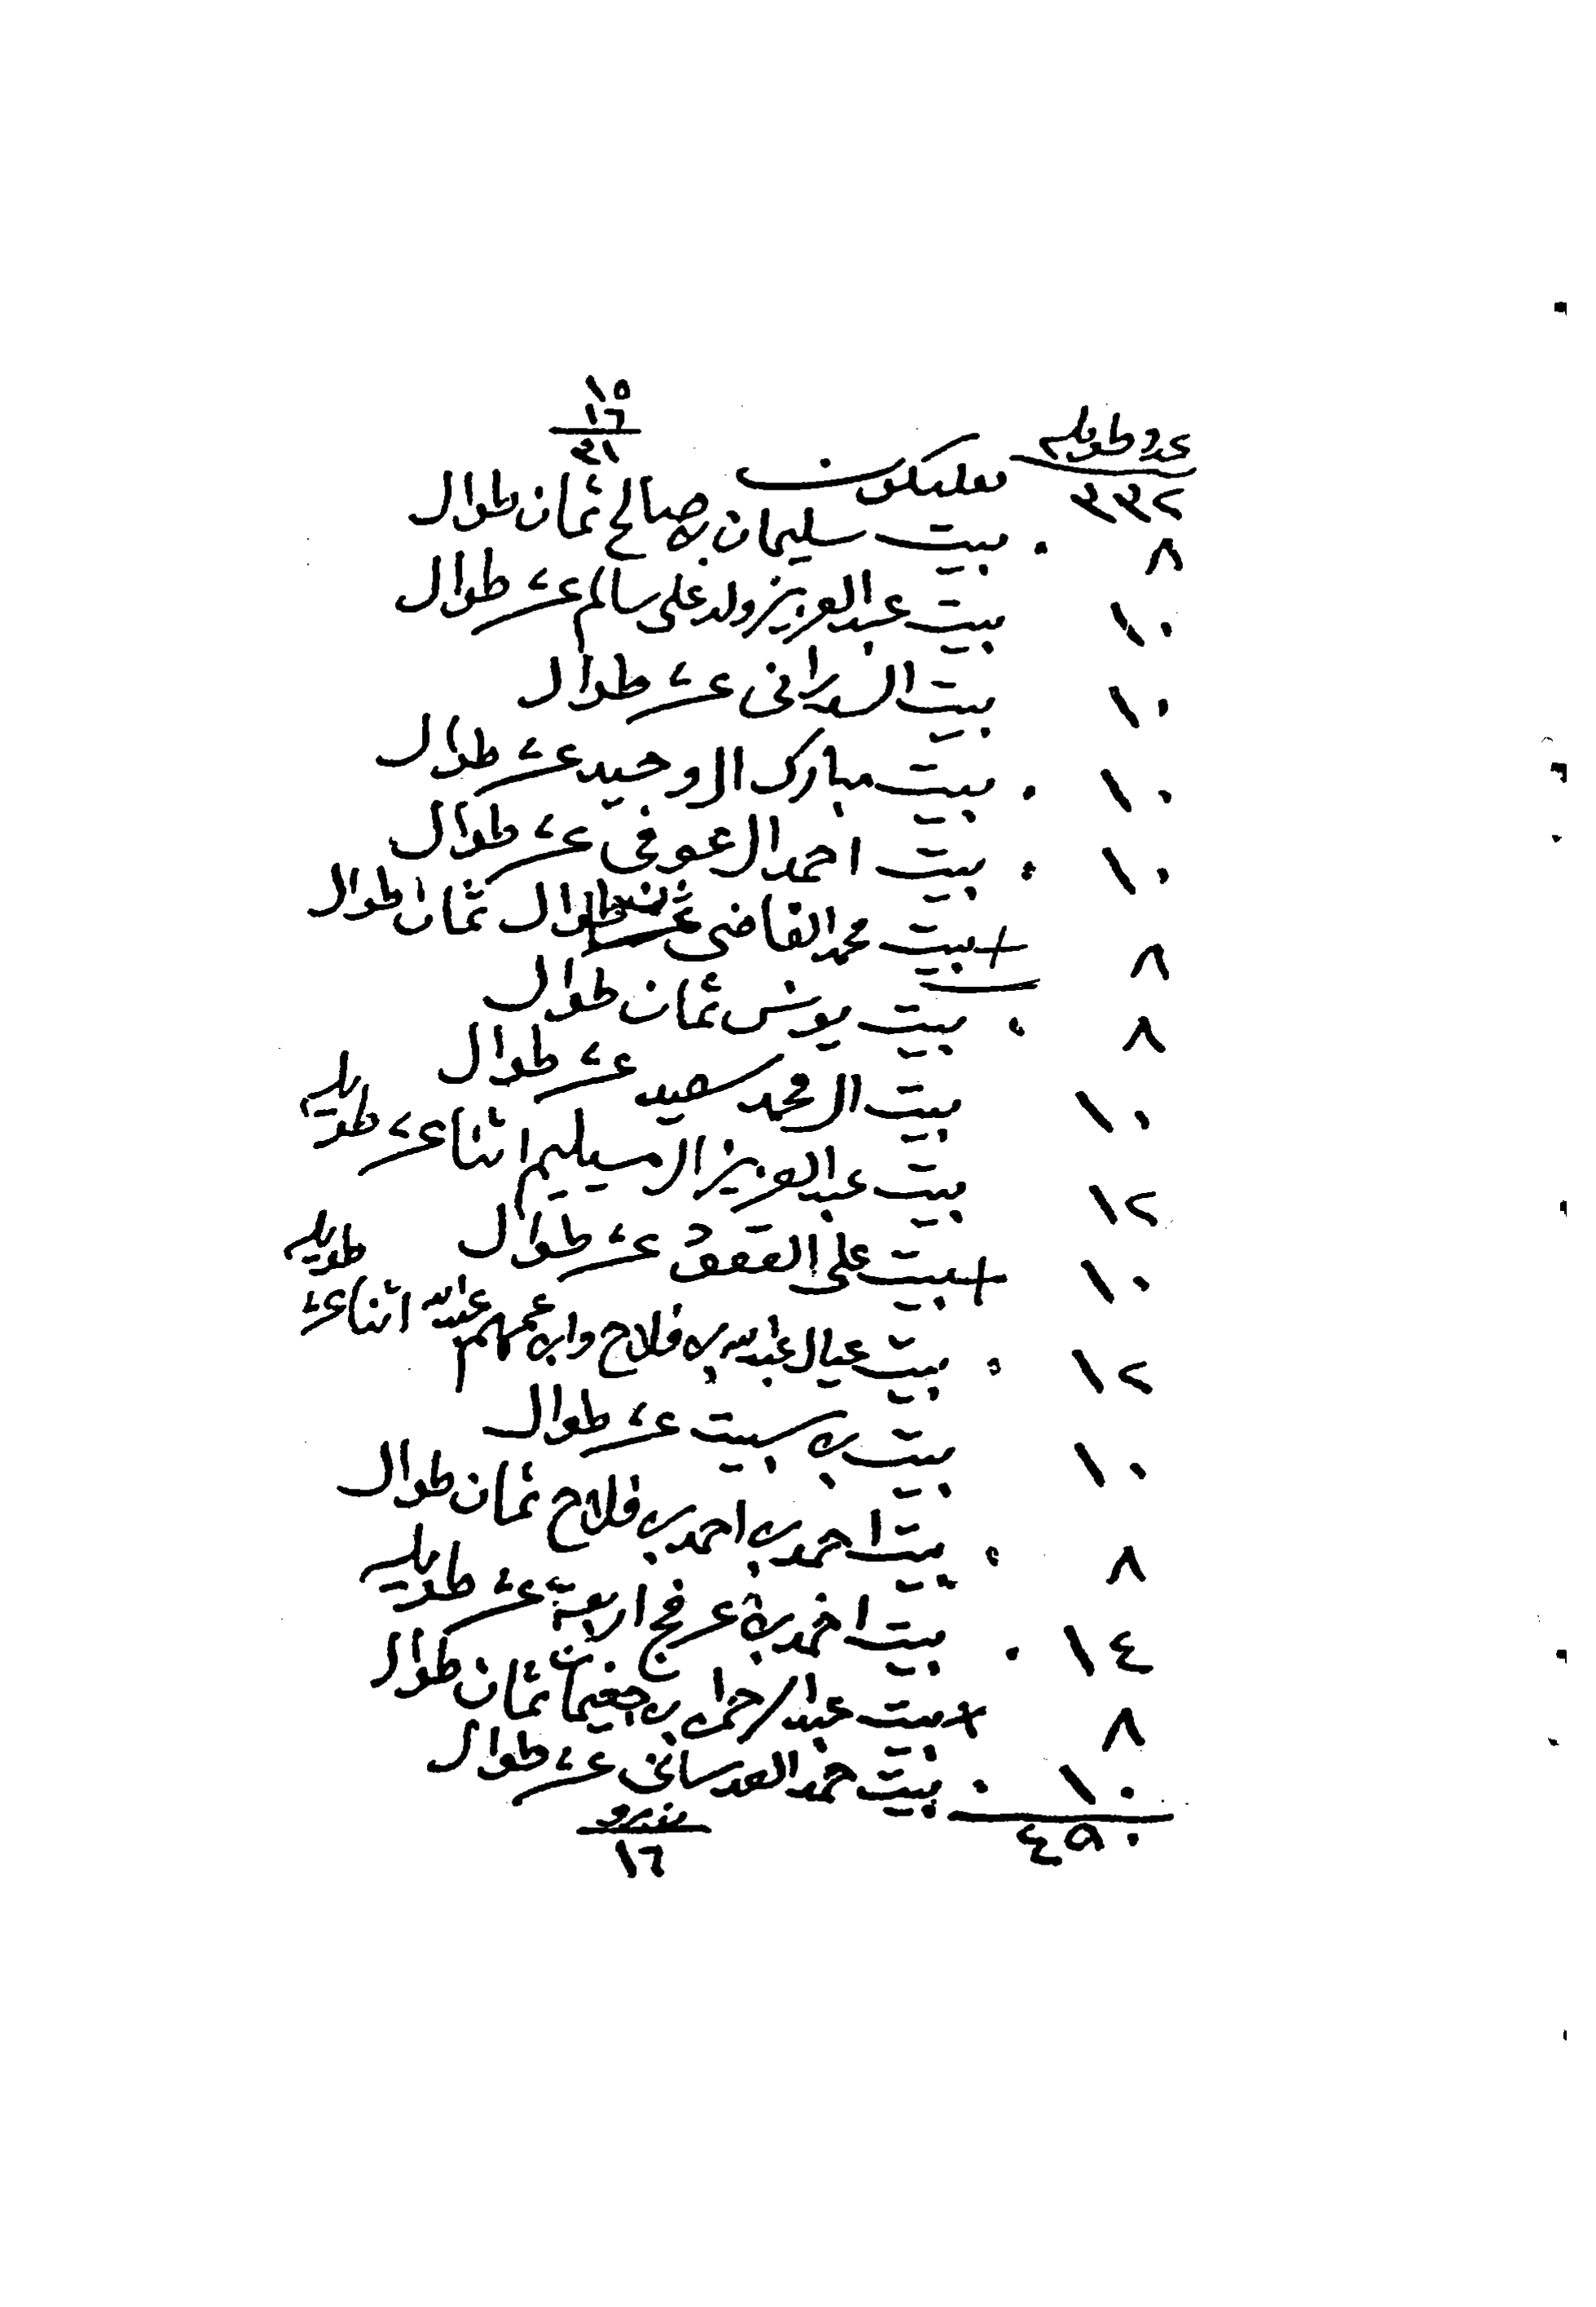 ١٥
١٦
٣١
عدد طويله
٣٣٢
٨ . بيت سليمان بن صالح ثمان طوال
١٠ بيت عبدالعزيز ولد علي سالم عشر طوال
١٠ بيت عشر طوال
١٠ . بيت مبارك الوحيد عشر طوال
١٠ . بيت احمد العوفي عشر طوال
٨ + بيت محمد القاضي طوال ثمان طوال
٨ . بيت يونس ثمان طوال
١٠ بيت ال محمد سعيد عشر طوال
١٢ بيت عبدالعزيز المسيليم اثناعشر طويله
١٠ + بيت علي القفق عشر طوال
١٢ . بيت عيال عبدالله بن فلاح وابن عمهم عبدالله اثناعشر طويله
١٠ بيت بن سبيت عشر طوال
٨ . بيت احمد بن احمد بن فلاح ثمان طوال
١٤ . بيت احمد بن عرفج اربعة عشر طويله
٨ + بيت عبدالرحمن بن ثمان طوال
١٠ . بيت حمد العدساني عشر طوال
٤٩٠
١٦